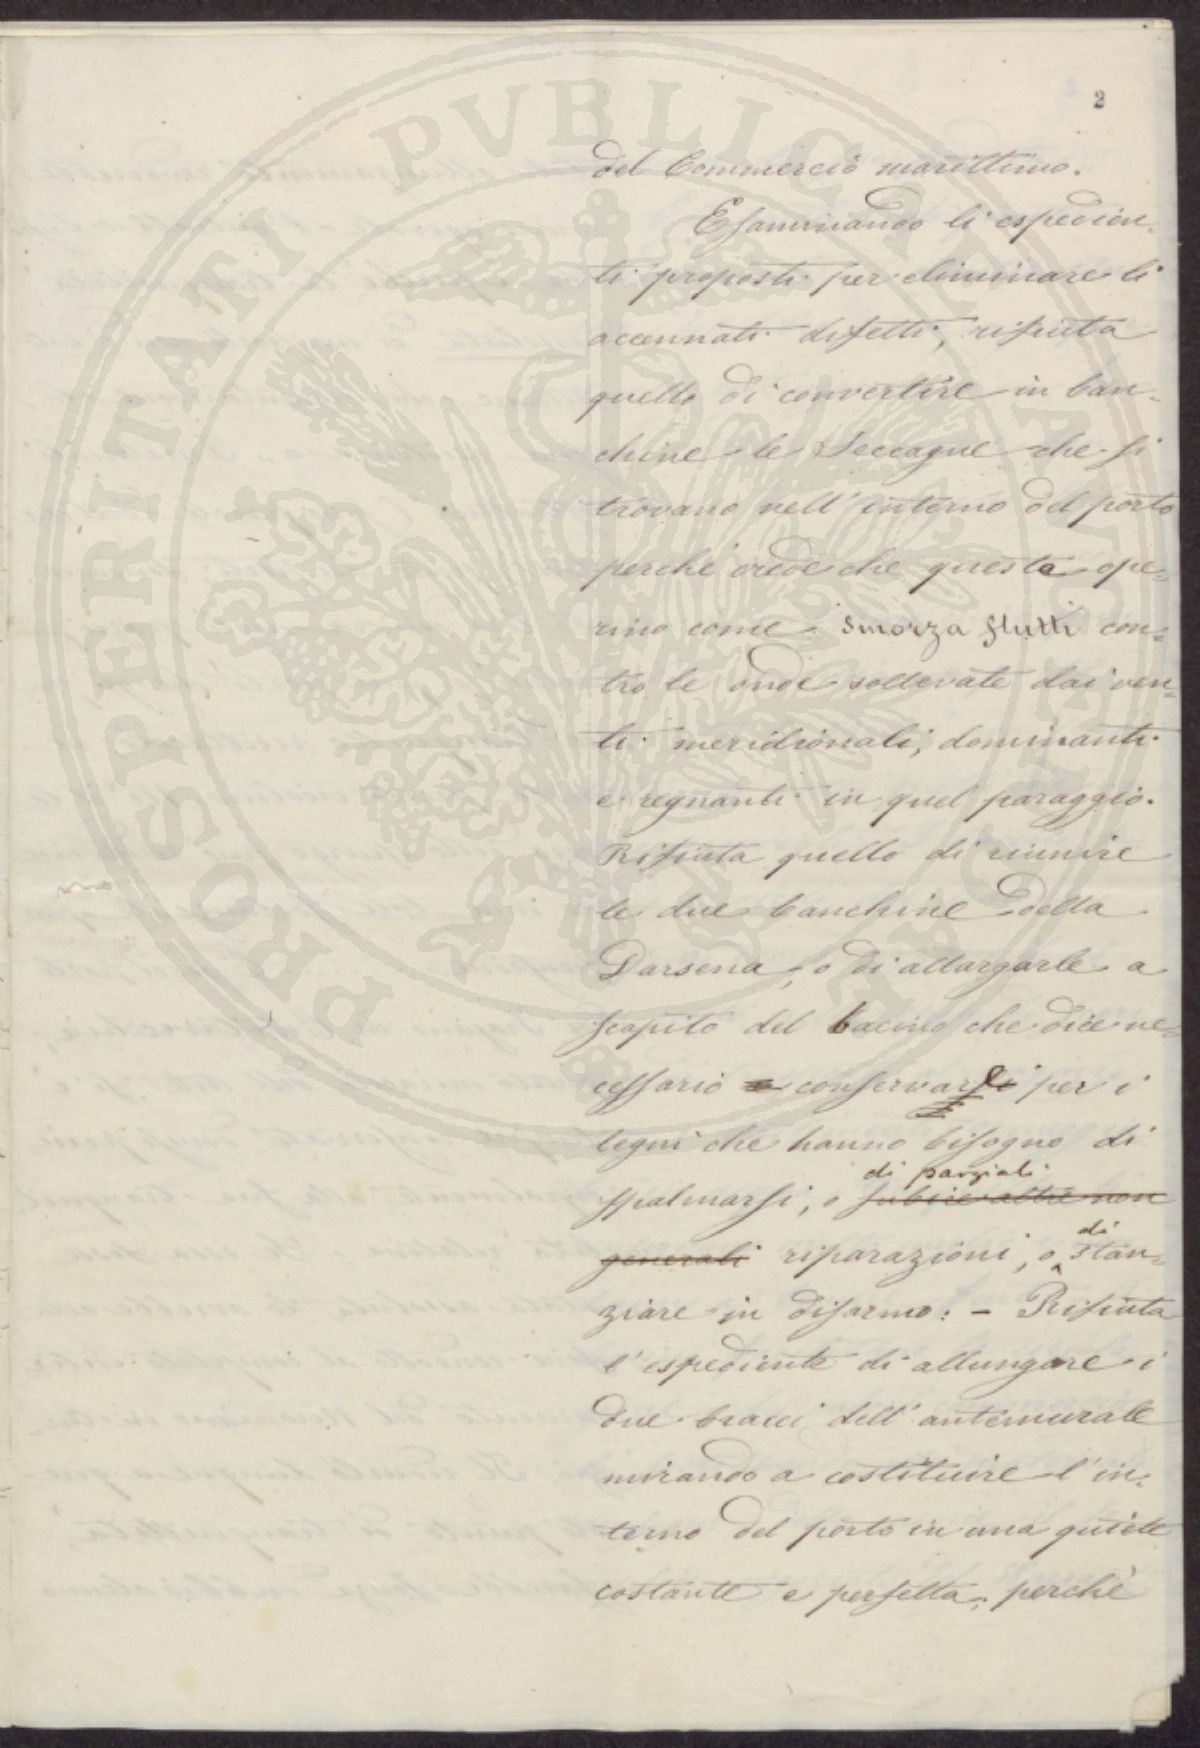 2
del Commercio marittimo.
Esaminando li espedien-
ti proposti per eliminare li
accennati difetti, rifiuta
quello di convertire in ban-
chine le Seccagne che si
trovano nell'interno del porto
perchè crede che queste ope-
rino come smorza flutti con-
tro le onde sollevate dai ven-
ti meridionali, dominanti
e regnanti in quel paraggio.
Rifiuta quello di riunire
le due banchine della
Darsena, o di allargarle a
scapito del bacino che dice ne-
cessario conservarli per i
legni che hanno bisogno di
di parziali
spalmarsi, o subire altre non
generali riparazioni, o di stan-
ziare in disarmo: - Rifiuta
l'espediente di allungare i
due bracci dell'antemurale
mirando a costituire l'in-
terno del porto in una quiete
costante e perfetta, perchè
PROSPERITATI PUBLICAE AUGENDAE